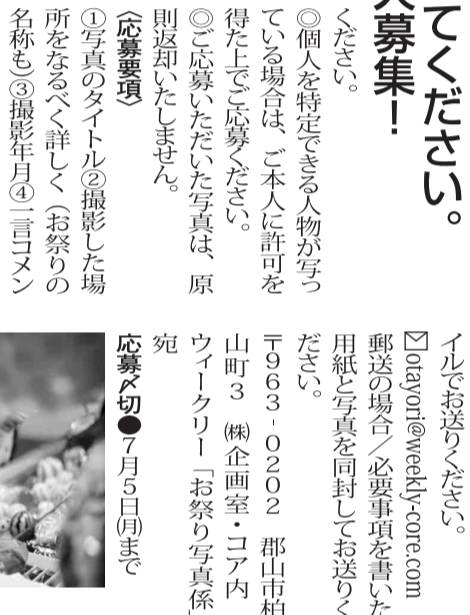 てください。
募集！
ください。
◎個人を特定できる人物が写っ
ている場合は、ご本人に許可を
得た上でご応募ください。
◎ご応募いただいた写真は、原
則返却いたしません。
〈応募要項〉
①写真のタイトル②撮影した場
所をなるべく詳しく（お祭りの
名称も）③撮影年月④一言コメン
イルでお送りください。
✉otayori@weekly-core.com
郵送の場合／必要事項を書いた
用紙と写真を同封してお送りく
ださい。
〒963-0202　郡山市柏
山町３　㈱企画室・コア内
ウィークリー「お祭り写真係」
宛
応募〆切●７月５日㈪まで